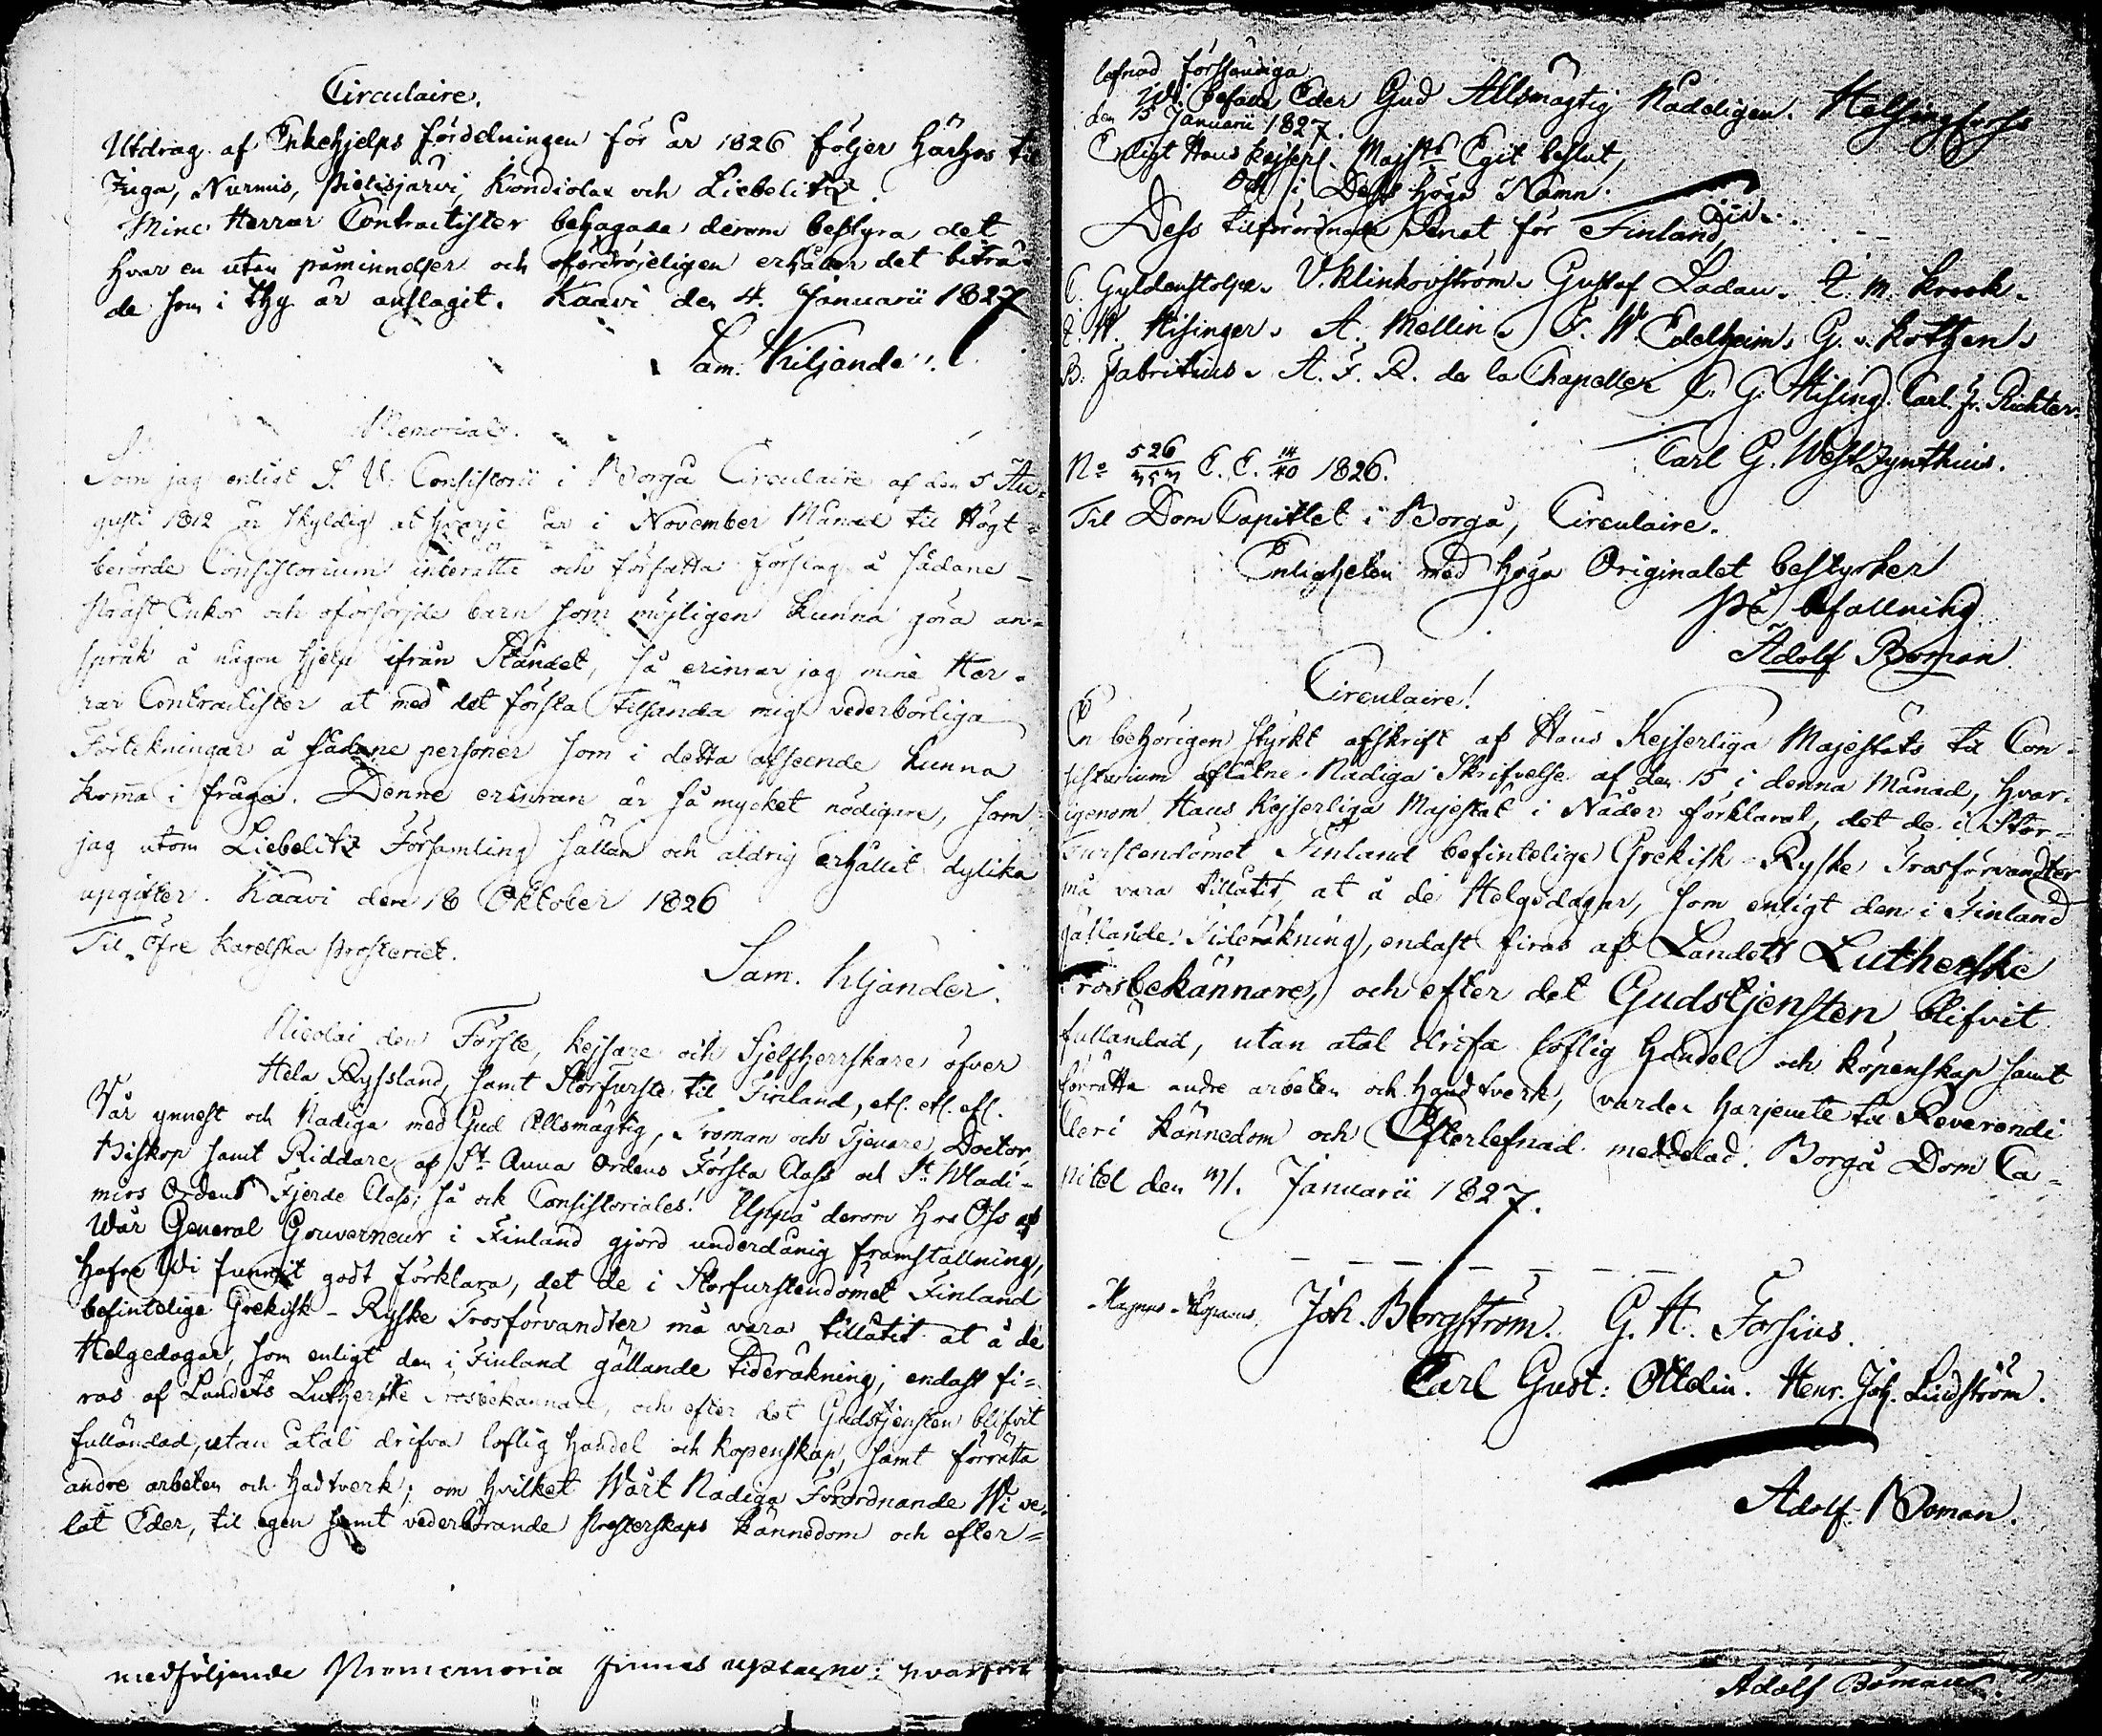 Circulaire.
Utdrag af Enkehjelps fördelningen för år 1826 följer härhos til
Juga, Nurmis, Pielisjärvi, Kondiolax och Liebelitz.
Mine Herrar Contractister behagade derom bestyra det
hvar en utan påminnelser och ofördröjeligen erhåller det biträ-
de som i thy är anslagit. Kaavi den 4. Januarii 1827
Sam. Kiljander.
Memorial.
Som jag enligt V. Consistorii i Borgå Circulaire af den 5 Au-
gusti 1812 är skyldig at hvarje år i November Månad til Högt-
berörde Consistorium inberätta och författa förslag å sådane
Präst Enkor och oförsörjde barn som möjligen kunna göra an-
språk å någon hjelp ifrån Ståndet, så erinrar jag mine Her-
rar Contractister at med det första tilsända mig vederbörliga
Förtekningar å sådane personer som i detta afseende kunna
komma i fråga. Denne erinran är så mycket nödigare, som
jag utom Liebelitz Församling sällan och aldrig erhållit dylika
upgifter. Kaavi den 18 Oktober 1826
Til Öfre Karelska Prosteriet.
Sam. Kljander.
Nicolai den Förste, Kejsare och Sjelfherrskare öfver
Hela Ryssland, samt Storfurste til Finland, etc. etc. etc.
Vår ynnest och Nådiga med Gud Allsmägtig, Troman och Tjenare, Doctor,
Biskop samt Riddare af St. Anna Ordens Första Class och St. Wladi-
mirs Ordens Fjerde Class, så ock Consistoriales! Uppå derom hos Oss af
Wår General Gouverneur i Finland gjord underdånig framställning,
hafve Wi funnit godt förklara, det de i Storfurstendömet Finland
befintelige Grekisk-Ryske Trosförvandter må vara tillåtit at å de
Helgedagar, som enligt den i Finland gällande tideräkning, endast fi-
ras af Landets Lutherske Trosbekännare, och efter det Gudstjensten blifvit
fulländad, utan åtal drifva loflig handel och köpenskap, samt förrätta
andre arbeten och hadtverk; om hvilket Wårt Nådiga Förordnande Wi ve-
lat Eder, til egen samt vederbörande Presterskaps kännedom och efter-
medföljande Promemoria finnes uptagne: hvarföre
lefnad förständiga
Wi befalla Eder Gud Allsmägtig Nådeligen. Helsingfors
den 15 Januarii 1827.
Enligt Hans Kejserl. Majsts Egit beslut,
Och i Dess Höga Namn.
Dess tilförordnade Senat för Finland
C. Gyldenstolpe. V. Klinkovström. Gustaf Ladau. E. M. Krook.
W. Hisinger. A. Mellin. F. W. Edelheim. G. v. Kothen.
B. Fabritius. A. F. R. de la Chapelle. C. G. Hising. Carl. Fr. Richter.
Carl G. Westzynthius.
No 526 E. E. 14/40 1826.
Til DomCapitlet i Borgå, Circulaire.
Enligheten med höga Originalet bestyrker
På befallning
Adolf Boman
Circulaire!
En behörigen styrkt afskrift af Hans Kejserliga Majestäts til Con-
sistorium aflåtne Nådiga Skrifvelse af den 15 i denna Månad, hvar-
igenom Hans Kejserliga Majestät i Nåder förklarat, det de i Stor-
Furstendömet Finland befintelige Grekisk-Ryske Trosförvandter
må vara tillåtit, at å de Helgedagar, som enligt den i Finland
gällande Tideräkning, endast firas af Landets Lutherske
Trosbekännare, och efter det Gudstjensten blifvit
fulländad, utan åtal drifa loflig Handel och köpenskap samt
förrätta andre arbeten och Handtverk, varder harjemte til Reverendi
Cleri kännedom och Efterlefnad meddelad. Borgå Dom Ca-
pitel den 31. Januarii 1827.
Magnus Alopaeus. Joh. Borgström. G. H. Forsius.
Carl Gust: Ottelin. Henr. Joh. Lindström.
Adolf Boman.
Adolf Boman.